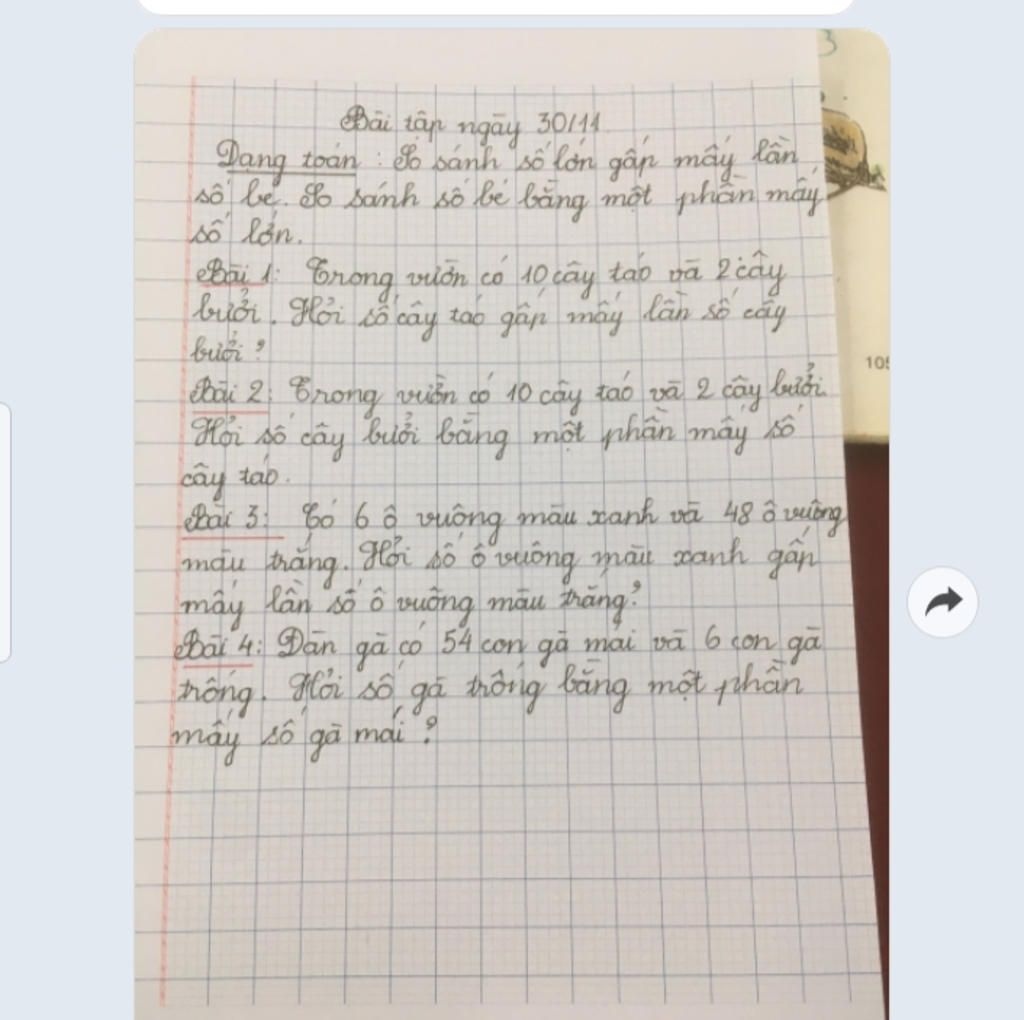 3
Bài tập ngày 30/11
Dạng toán : So sánh số lớn gấp mấy lần
số bé. So sánh số bé bằng một phần mấy
số lớn.
Bài 1: Trong vườn có 10 cây táo và 2 cây
bưởi. Hỏi số cây táo gấp mấy lần số cây
bưởi ?
105
Bài 2: Trong vườn có 10 cây táo và 2 cây bưởi.
Hỏi số cây bưởi bằng một phần mấy số
cây táo.
Bài 3: Có 6 ô vuông màu xanh và 48 ô vuông
màu trắng. Hỏi số ô vuông màu xanh gấp
mấy lần số ô vuông màu trắng?
Bài 4: Đàn gà có 54 con gà mái và 6 con gà
trống. Hỏi số gà trống bằng một phần
mấy số gà mái ?